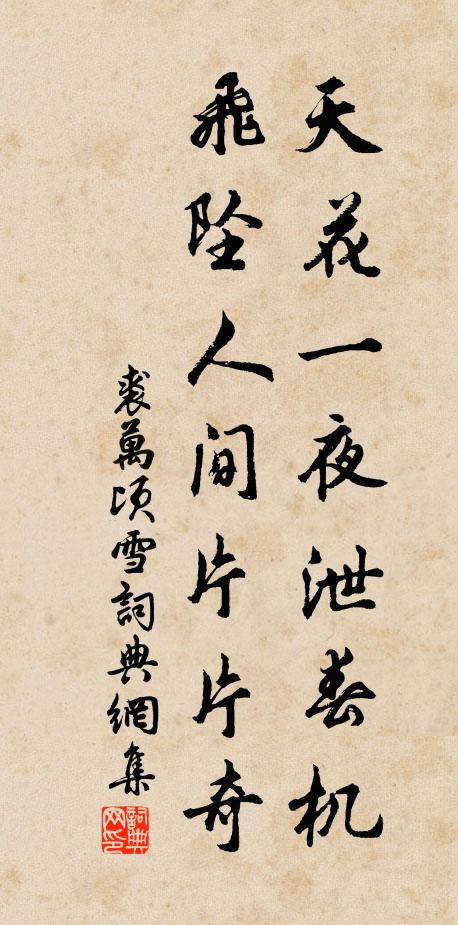 天花一夜泄春机
飛坠人间片片奇
裘萬頃雪詞典網集
詞典网印